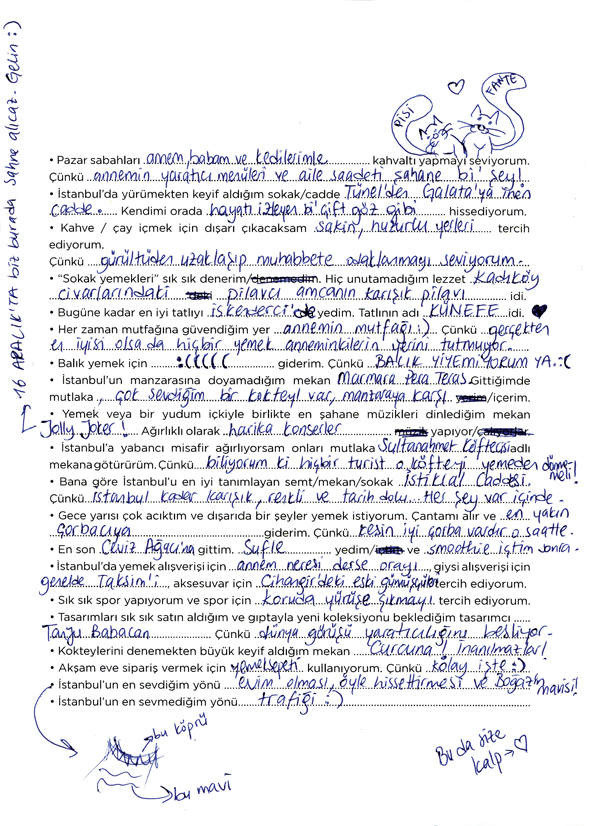 16 ARALIK'TA biz burada Sahne alıcaz. Gelin :)
PİSİ
FANTE
• Pazar sabahları annem, babam ve kedilerimle kahvaltı yapmayı seviyorum.
Çünkü annemin yaratıcı menüleri ve aile saadeti şahane bi' şey!
• İstanbul'da yürümekten keyif aldığım sokak/cadde Tünel'den Galata'ya inen
cadde. Kendimi orada hayatı izleyen bi' çift göz gibi hissediyorum.
• Kahve / çay içmek için dışarı çıkacaksam sakin, huzurlu yerleri tercih
ediyorum.
Çünkü gürültüden uzaklaşıp muhabbete odaklanmayı seviyorum.
• "Sokak yemekleri" sık sık denerim/denemedim. Hiç unutamadığım lezzet Kadıköy
civarlarındaki pilavcı amcanın karışık pilavı idi.
• Bugüne kadar en iyi tatlıyı iskenderci'de yedim. Tatlının adı KÜNEFE idi.
• Her zaman mutfağına güvendiğim yer annemin mutfağı :) Çünkü gerçekten
en iyisi olsa da hiçbir yemek anneminkilerin yerini tutmuyor.
• Balık yemek için :((((( giderim. Çünkü BALIK YİYEMİYORUM YA. :(
• İstanbul'un manzarasına doyamadığım mekan Marmara Pera Teras Gittiğimde
mutlaka çok sevdiğim bir kokteyl var, manzaraya karşı yerim/içerim.
• Yemek veya bir yudum içkiyle birlikte en sahane müzikleri dinlediğim mekan
Jolly Joker! Ağırlıklı olarak harika konserler müzik yapıyor/çalıyorlar.
• İstanbul'a yabancı misafir ağırlıyorsam onları mutlaka Sultanahmet Köftecisi adlı
mekana götürürüm. Çünkü biliyorum ki hiçbir turist o köfteyi yemeden dönmemeli!
• Bana göre İstanbul'u en iyi tanımlayan semt/mekan/sokak İstiklal Caddesi.
Çünkü İstanbul kadar karışık, renkli ve tarih dolu. Her şey var içinde.
• Gece yarısı çok acıktım ve dışarıda bir şeyler yemek istiyorum. Çantamı alır ve en yakın
çorbacıya giderim. Çünkü kesin iyi çorba vardır o saatte.
• En son Ceviz Ağacı'na gittim. Sufle yedim/içtim ve smoothie içtim sonra.
• İstanbul'da yemek alışverişi için annem neresi derse orayı, giysi alışverişi için
genelde Taksim'i, aksesuvar için Cihangir'deki eski gümüşçüleri tercih ediyorum.
• Sık sık spor yapıyorum ve spor için koruda yürüyüşe çıkmayı tercih ediyorum.
• Tasarımları sık sık satın aldığım ve gıptayla yeni koleksiyonu beklediğim tasarımcı
Tanju Babacan Çünkü dünya görüşü yaratıcılığını besliyor.
• Kokteylerini denemekten büyük keyif aldığım mekan Curcuna! İnanılmazlar!
• Akşam eve sipariş vermek için yemeksepeti kullanıyorum. Çünkü kolay işte :)
• İstanbul'un en sevdiğim yönü evim olması, öyle hissettirmesi ve Boğazın mavisi!
• İstanbul'un en sevmediğim yönü trafiği :)
bu köprü
bu mavi
Bu da size
kalp